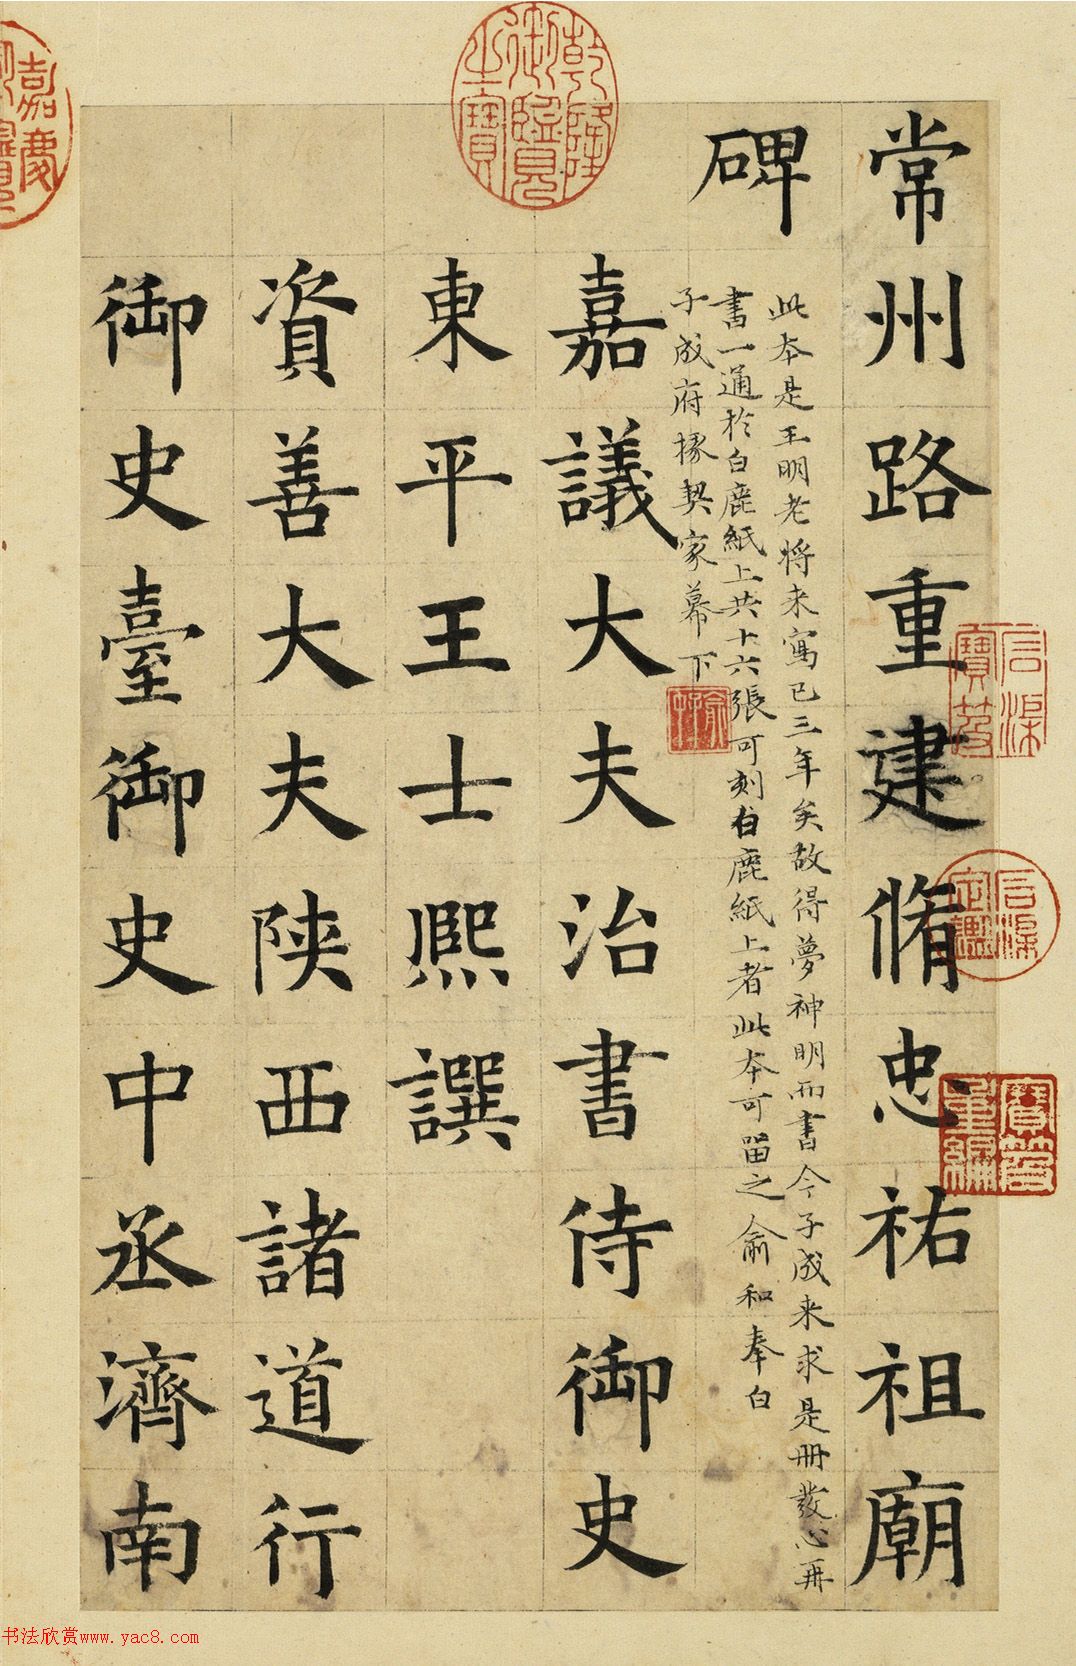 常州路重建脩忠祐祖廟
碑
此本是王明老將来寫已三年矣故得夢神明而書今子成来求是冊發心再
書一通於白鹿紙上共十六張可刻白鹿紙上者此本可留之俞和奉白
子成府掾契家幕下
嘉議大夫治書侍御史
東平王士熙譔
資善大夫陝西諸道行
御史臺御史中丞濟南
乾隆御覽之寶
嘉慶
石渠寶笈
石渠定鑑
寶笈重編
书法欣赏www.yac8.com